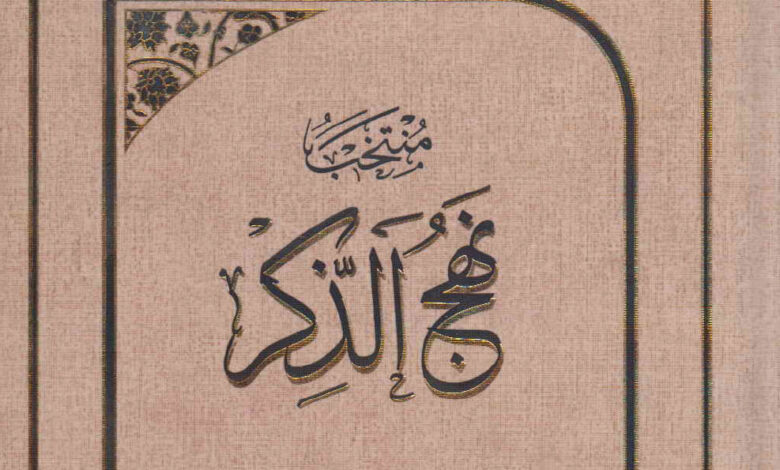 مُنتَخَب
نَهجُ الذِّكر